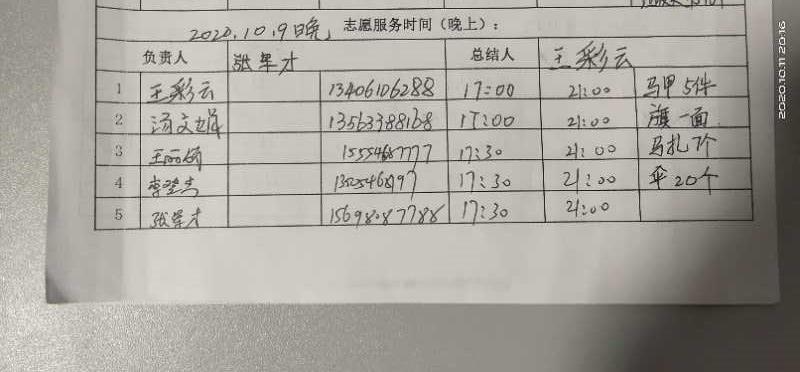 2020.10.9晚 志愿服务时间（晚上）：
负责人 张军才 总结人 王彩云
1 王彩云 13406106288 17:00 21:00 马甲5件
2 汤文娟 13563388168 17:00 21:00 旗一面
3 王丽娇 15554687777 17:30 21:00 马扎7个
4 17:30 21:00 伞20个
5 张军才 15698087788 17:30 21:00
2020.10.11 20:16